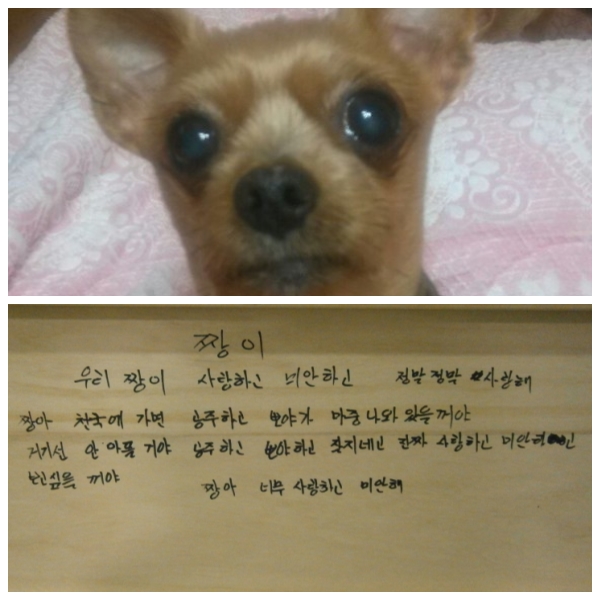 짱이
우리 짱이 사랑하고 미안하고 정말 정말 사랑해
짱아 천국에 가면 공주하고 뽀야가 마중 나와 있을 꺼야
거기선 안 아플 거야 공주하고 뽀야하고 잘지네고 진짜 사랑하고 미안하고
보고싶을 꺼야
짱아 너무 사랑하고 미안해